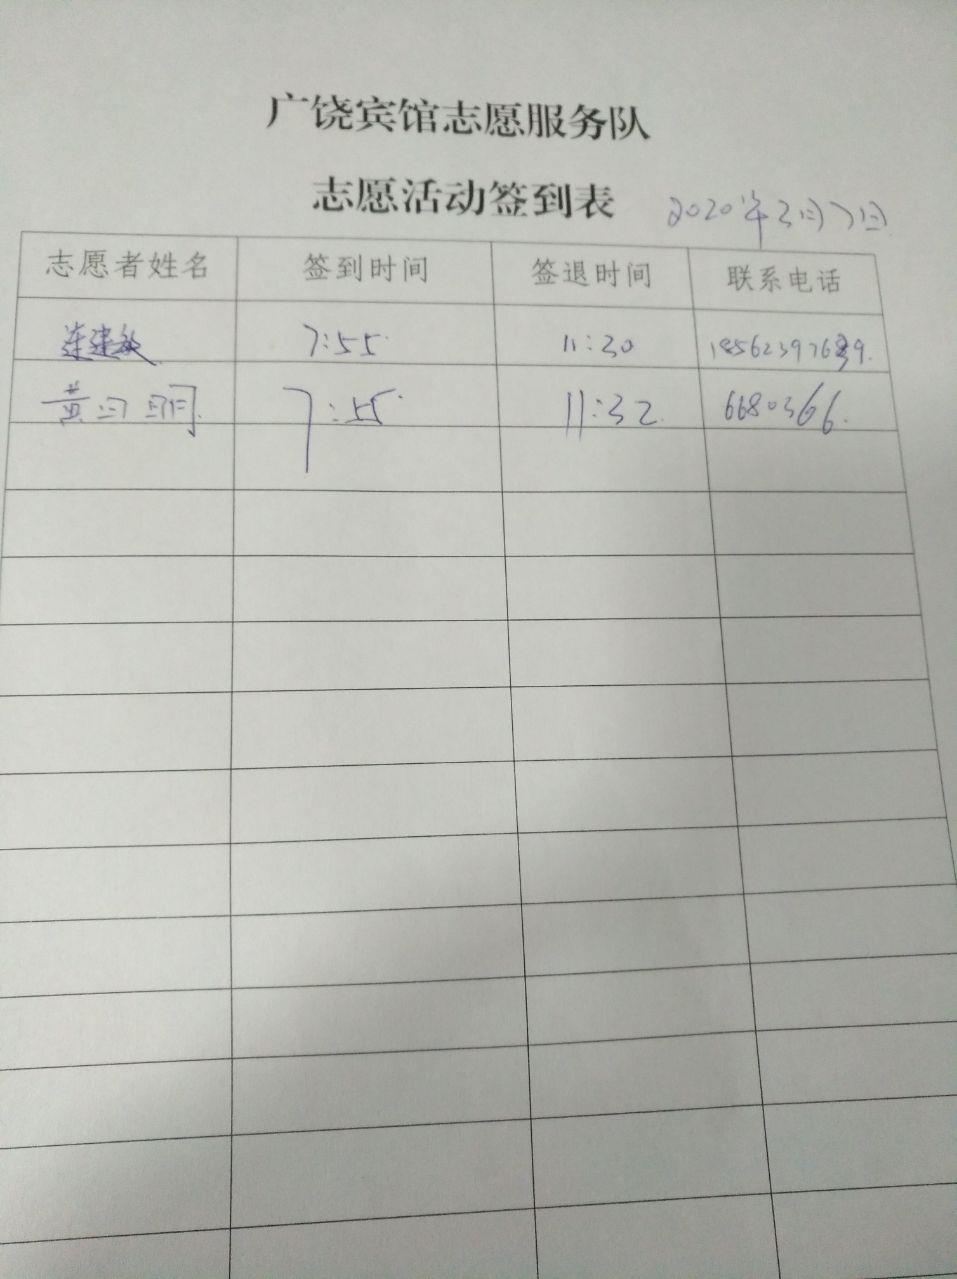 广饶宾馆志愿服务队
志愿活动签到表 2020年2月7日
志愿者姓名 签到时间 签退时间 联系电话
连建敏 7:55 11:30 18562397689.
黄 7:55 11:32 6680366.